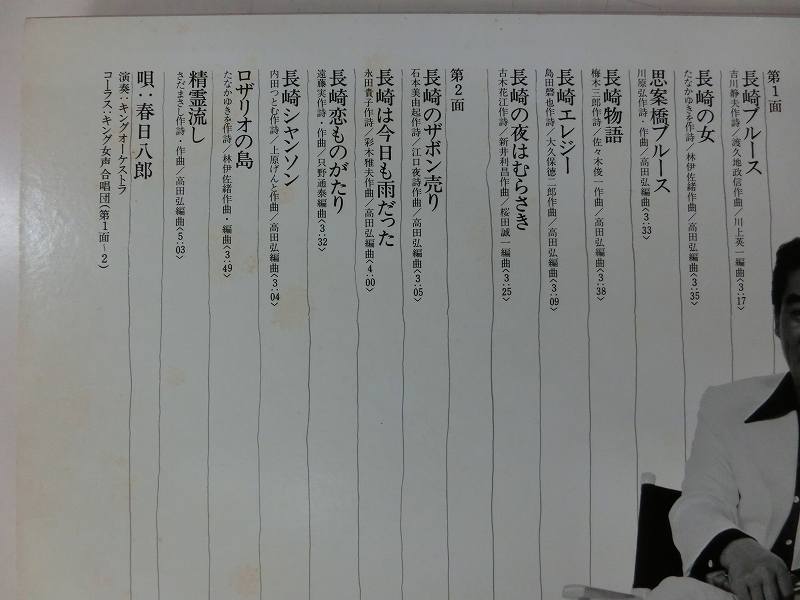 第1面
長崎ブルース
吉川静夫作詩／渡久地政信作曲／川上英一編曲〈3:17〉
長崎の女
たなかゆきを作詩／林伊佐緒作曲／高田弘編曲〈3:35〉
思案橋ブルース
川原弘作詩・作曲／高田弘編曲〈3:33〉
長崎物語
梅木三郎作詩／佐々木俊一作曲／高田弘編曲〈3:38〉
長崎エレジー
島田磬也作詩／大久保徳二郎作曲／高田弘編曲〈3:09〉
長崎の夜はむらさき
古木花江作詩／新井利昌作曲／桜田誠一編曲〈3:25〉
第2面
長崎のザボン売り
石本美由起作詩／江口夜詩作曲／高田弘編曲〈3:05〉
長崎は今日も雨だった
永田貴子作詩／彩木雅夫作曲／高田弘編曲〈4:00〉
長崎恋ものがたり
遠藤実作詩・作曲／只野通泰編曲〈3:32〉
長崎シャンソン
内田つとむ作詩／上原げんと作曲／高田弘編曲〈3:04〉
ロザリオの島
たなかゆきを作詩／林伊佐緒作曲・編曲〈3:49〉
精霊流し
さだまさし作詩・作曲／高田弘編曲〈5:03〉
唄:春日八郎
演奏:キングオーケストラ
コーラス:キング女声合唱団(第1面〜2)